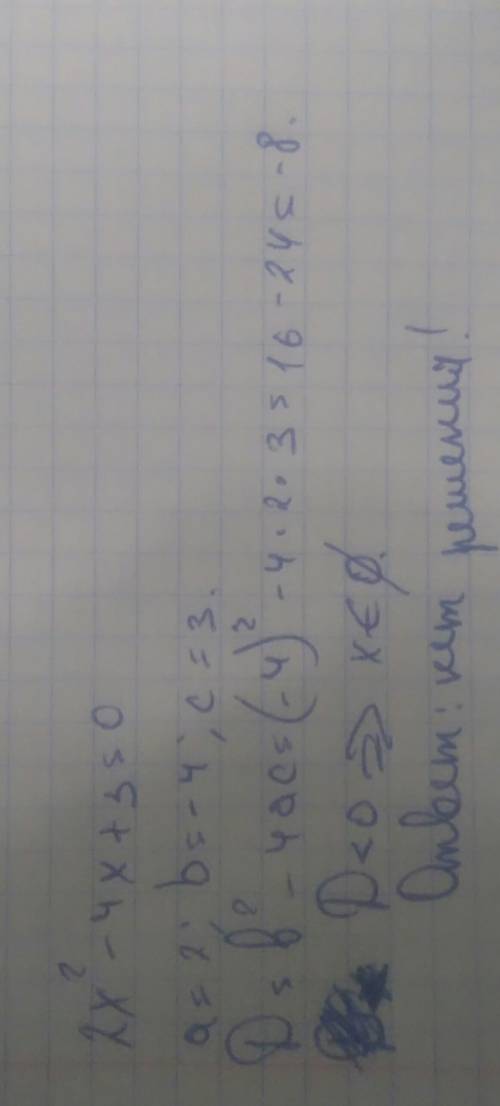 2x² - 4x + 3 = 0
a = 2; b = -4; c = 3.
D = b² - 4ac = (-4)² - 4 · 2 · 3 = 16 - 24 = -8.
D < 0 => x ∈ ∅.
Ответ: нет решений!